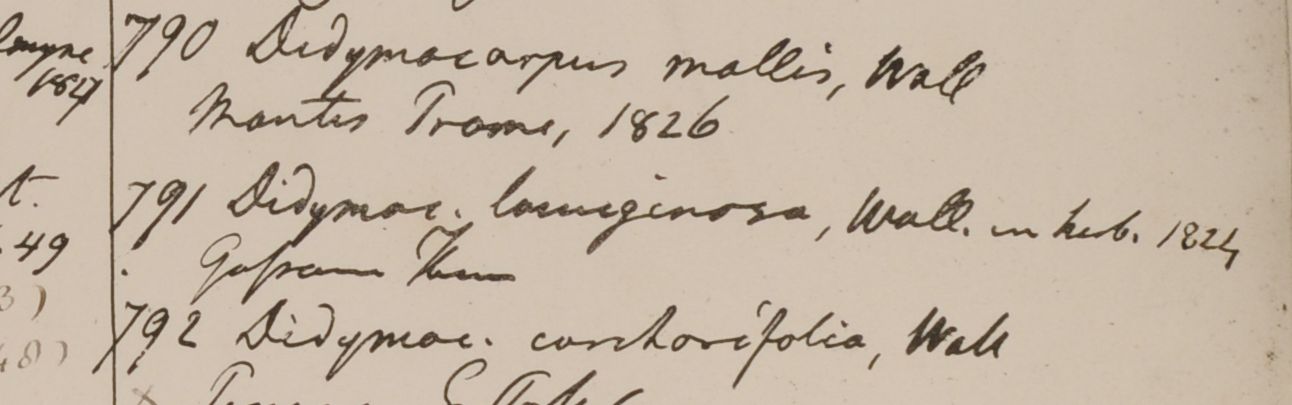 1827
790 Didymocarpus mollis, Wall
Montes Prome, 1826
t.
791 Didymoc. lanuginosa, Wall. in herb. 1824
49
3)
792 Didymoc. corchorifolia, Wall
48)